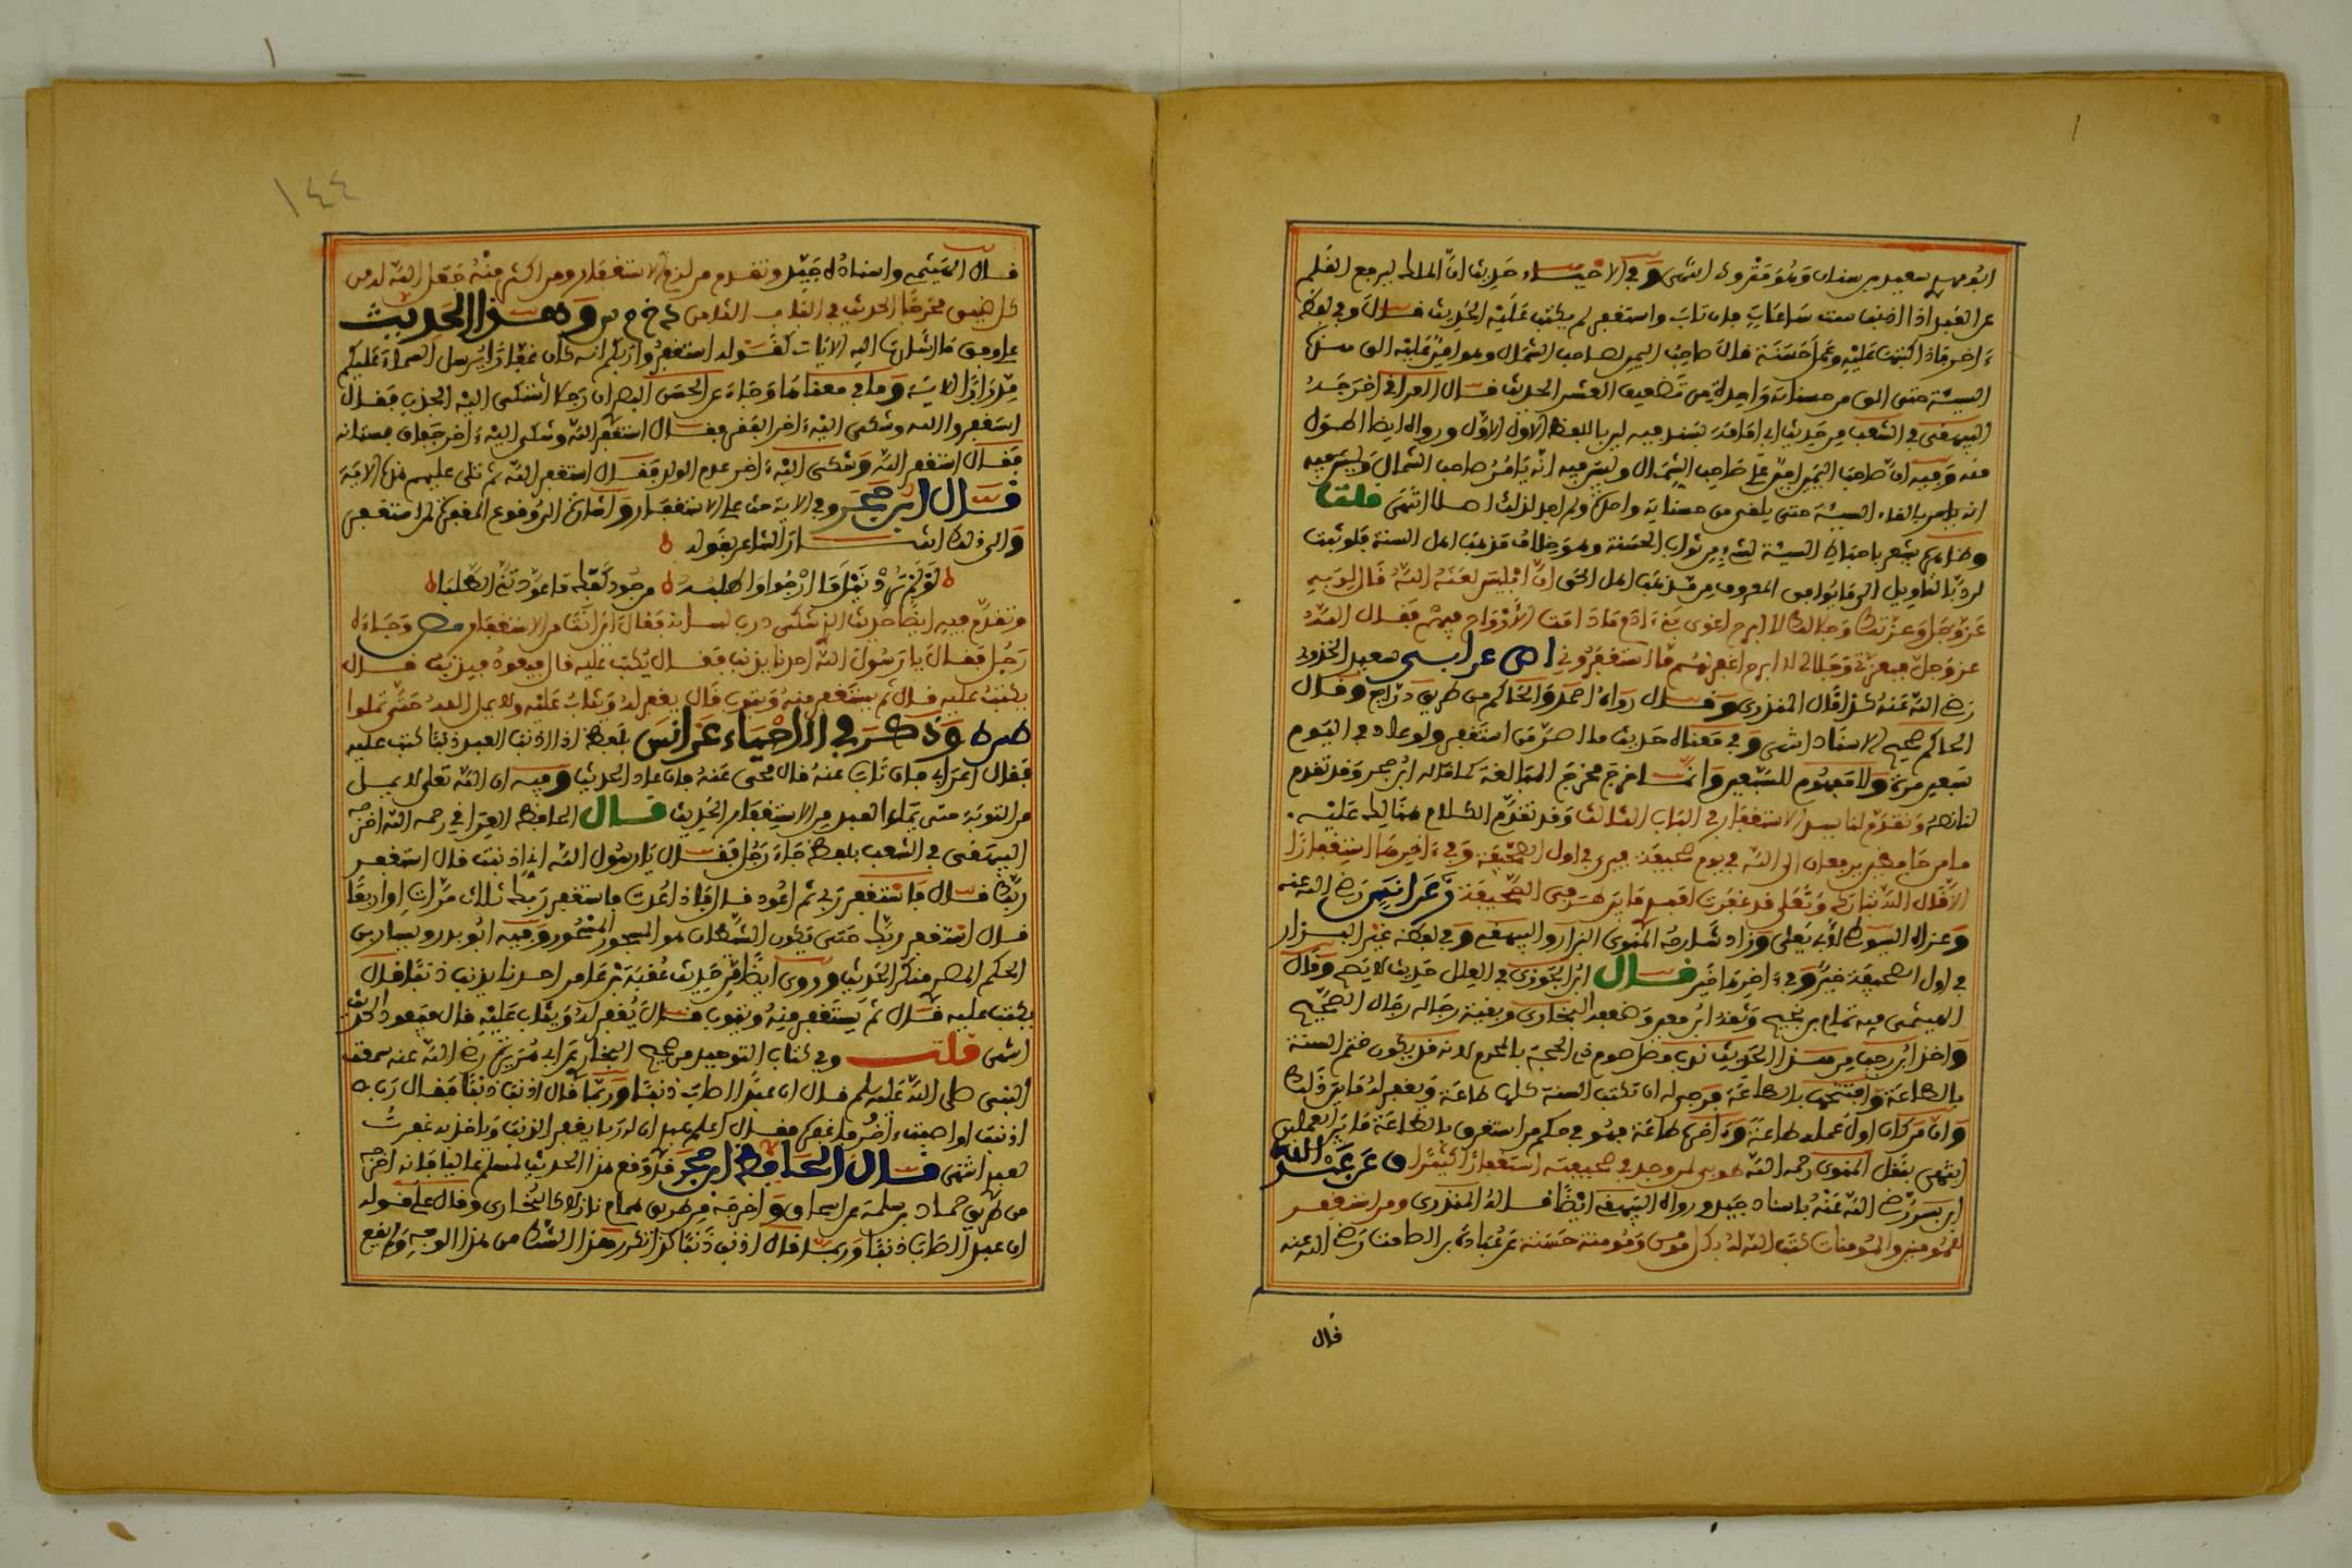 ابو مهدي سعيد بن سنان وهو متروك انتهى وفي الاحياء حديث ان الملك ليرفع القلم
عن العبد اذا اذنب ست ساعات فان تاب واستغفر لم يكتب عليه الحديث قال وفي لفظ
ءاخر فاذا كتبت عليه وعمل حسنة قال صاحب اليمين لصاحب الشمال وهو امير عليه الق هذه
السيئة حتى القى من حسناته واحدة من تضعيف العشر الحديث قال العراقي اخرجه
البيهقي في الشعب من حديث ابي امامة بسند فيه لين باللفظ الاول ورواه ايضا اطول
منه وفيه ان صاحب اليمين امير على صاحب الشمال وليس فيه انه يامر صاحب الشمال
بالقاء السيئة حتى يلقي من حسناته واحدة ولم اجد لذلك اصلا انتهى قلت
وظاهره يشعر باحباط السيئة لشيء من ثواب الحسنة وهو خلاف مذهب اهل السنة فلو ثبت
لرد بالتاويل الى ما يوافق المعروف من مذهب اهل الحق ان ابليس لعنه الله قال لربه
عز وجل وعزتك وجلالك لا ابرح اغوي بني ءادم ما دامت الارواح فيهم فقال الله
عز وجل فبعزتي وجلالي لا ابرح اغفر لهم ما استغفروني عن ابي سعيد الخدري
رضي الله عنه كذا قال المنذري وقال رواه احمد والحاكم من طريق دراج وقال
الحاكم صحيح الاسناد انتهى وفي معناه حديث ما اصر من استغفر ولو عاد في اليوم
سبعين مرة ولا مفهوم للسبعين وانما خرج مخرج المبالغة كما قاله ابن حجر وقد تقدم
لنا نصه وتقدم لنا بيان الاستغفار في الباب الثالث وقد تقدم الكلام هنالك عليه
ما من حافظين يرفعان الى الله في يوم صحيفة فيرى في اول الصحيفة وفي ءاخرها استغفارا
الا قال الله تبارك وتعالى قد غفرت لعبدي ما بين طرفي الصحيفة عن انس رضي الله عنه
وعزاه السيوطي لابي يعلى وزاد شارحه المنوي البزار والبيهقي وفي لفظ غير البزار
في اول الصحيفة خير وفي ءاخرها خير قال ابن الجوزي في العلل حديث لا يصح وقال
الهيثمي فيه تمام بن نجيح وثقه ابن معين وضعفه البخاري وبقية رجاله رجال الصحيح
واخذ ابن رجب من هذا الحديث ندب وصل صوم ذي الحجة بالمحرم لانه قد يكون ختم السنة
بالطاعة وافتتحها بالطاعة فيرجى له ان تكتب السنة كلها طاعة ويغفر له ما بين ذلك
وان من كان اول عمله طاعة وءاخره طاعة فهو في حكم من استغرق بالطاعة ما بين العملين
انتهى بنقل المنوي رحمه الله طوبى لمن وجد في صحيفته استغفارا كثيرا عن عبد الله
ابن بسر رضي الله عنه باسناد جيد ورواه البيهقي ايضا قاله المنذري ومن استغفر
للمؤمنين والمؤمنات كتب الله له بكل مؤمن ومؤمنة حسنة عن عبادة بن الصامت رضي الله عنه
قال
١٤٤
قال الهيثمي واسناده جيد وتقدم من لزم الاستغفار ومن اكثر منه جعل الله له من
كل ضيق مخرجا الحديث في الباب الثامن وهذا الحديث
على وفق ما اشارت اليه الايات كقوله استغفروا ربكم انه كان غفارا يرسل السماء عليكم
مدرارا الاية وما في معناها وجاء عن الحسن البصري ان رجلا اشتكى اليه الجدب فقال
استغفروا الله وشكى اليه ءاخر الفقر فقال استغفر الله وشكى اليه ءاخر جفاف بستانه
فقال استغفر الله وشكى اليه ءاخر عدم الولد فقال استغفر الله ثم تلى عليهم هذه الاية
قال ابن حجر وفي الاية حث على الاستغفار واشارة الى وقوع المغفرة لمن استغفر
والى ذلك اشار الشاعر بقوله
لو لم ترد نيل ما ارجو واطلبه من جود كفك ما عودتني الطلبا
وتقدم فيه ايضا حديث الذي شكى ذرب لسانه فقال اين انت من الاستغفار وجاءه
رجل فقال يا رسول الله احدنا يذنب فقال يكتب عليه قال فيعود فيذنب قال
يكتب عليه قال ثم يستغفر منه ويتوب قال يغفر له ويتاب عليه ولا يمل الله حتى تملوا
وذكره في الاحياء عن انس بلفظ اذا اذنب العبد ذنبا كتب عليه
فقال اعرابي فان تاب عنه قال محي عنه فان عاد الحديث وفيه ان الله تعالى لا يمل
من التوبة حتى يمل العبد من الاستغفار الحديث قال الحافظ العراقي رحمه الله اخرجه
البيهقي في الشعب بلفظ جاء رجل فقال يا رسول الله اني اذنبت قال استغفر
ربك قال فاستغفر ربي ثم اعود قال فاذا عدت فاستغفر ربك ثلاث مرات او اربعا
قال استغفر ربك حتى يكون الشيطان هو المسجور المنحور وفيه ابو بدر ويسار بن
الحكم المصري منكر الحديث وروى ايضا من حديث عقبة بن عامر احدنا يذنب ذنبا قال
يكتب عليه قال ثم يستغفر منه ويتوب قال يغفر له ويتاب عليه قال فيعود الحديث
انتهى قلت وفي كتاب التوحيد من صحيح البخاري عن ابي هريرة رضي الله عنه سمعت
النبي صلى الله عليه وسلم قال ان عبدا اصاب ذنبا وربما قال اذنب ذنبا فقال رب
اذنبت او اصبت ءاخر فاغفره فقال اعلم عبدي ان له ربا يغفر الذنب وياخذ به غفرت
لعبدي انتهى قال الحافظ ابن حجر قد وقع هذا الحديث لمسلم عاليا فانه اخرجه
من طريق حماد بن سلمة عن اسحاق واخرجه من طريق همام نازلا كالبخاري وقال على قوله
ان عبدا اصاب ذنبا وربما قال اذنب ذنبا كذا تكرر هذا الشك من هذا الوجه ولم يقع